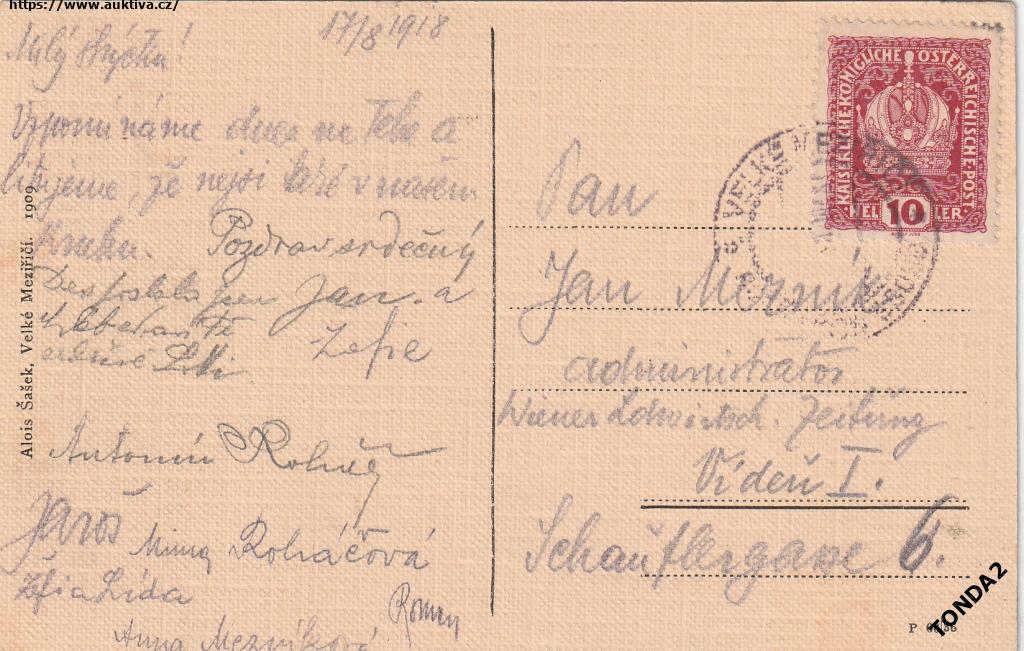 https://www.auktiva.cz/
17/8 1918
Milý strýčku!
Vzpomínáme dnes na Tebe a
litujeme, že nejsi též v našem
kruhu.
Pozdrav srdečný
Jan a
Zefie
Antonín Roháč
Jaroš
Minna Roháčová
Žofia Lída
Roman
Anna Mezníková
Alois Šašek, Velké Meziříčí. 1909.
KAISERLICHE KÖNIGLICHE ÖSTERREICHISCHE POST
HELLER
10
VELKÉ
Pan
Jan Mezník
administrátor
Wiener Landwirtsch. Zeitung
Vídeň I.
Schauflergasse 6.
P
TONDA2